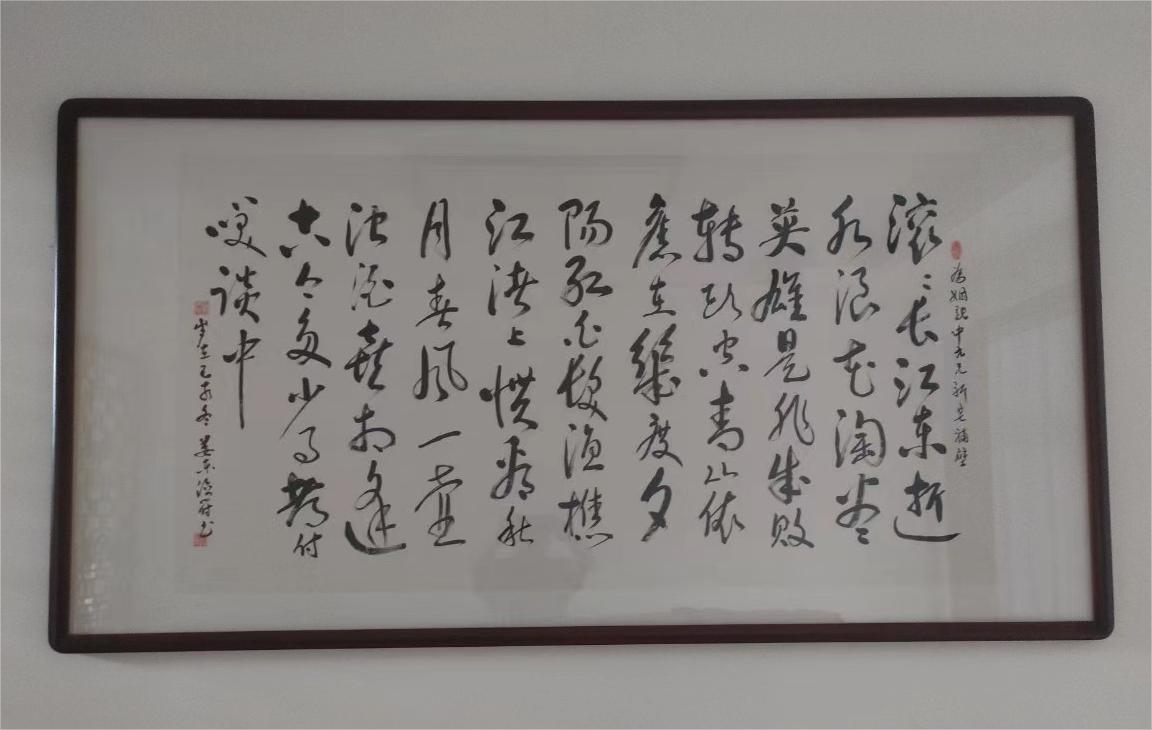 為姻親中九兄新宅補壁
滚滚长江东逝
水浪花淘尽
英雄是非成败
转头空青山依
旧在幾度夕
阳红白发渔樵
江渚上惯看秋
月春风一壶
浊酒喜相逢
古今多少事都付
笑谈中
岁在乙 冬 娄东 书